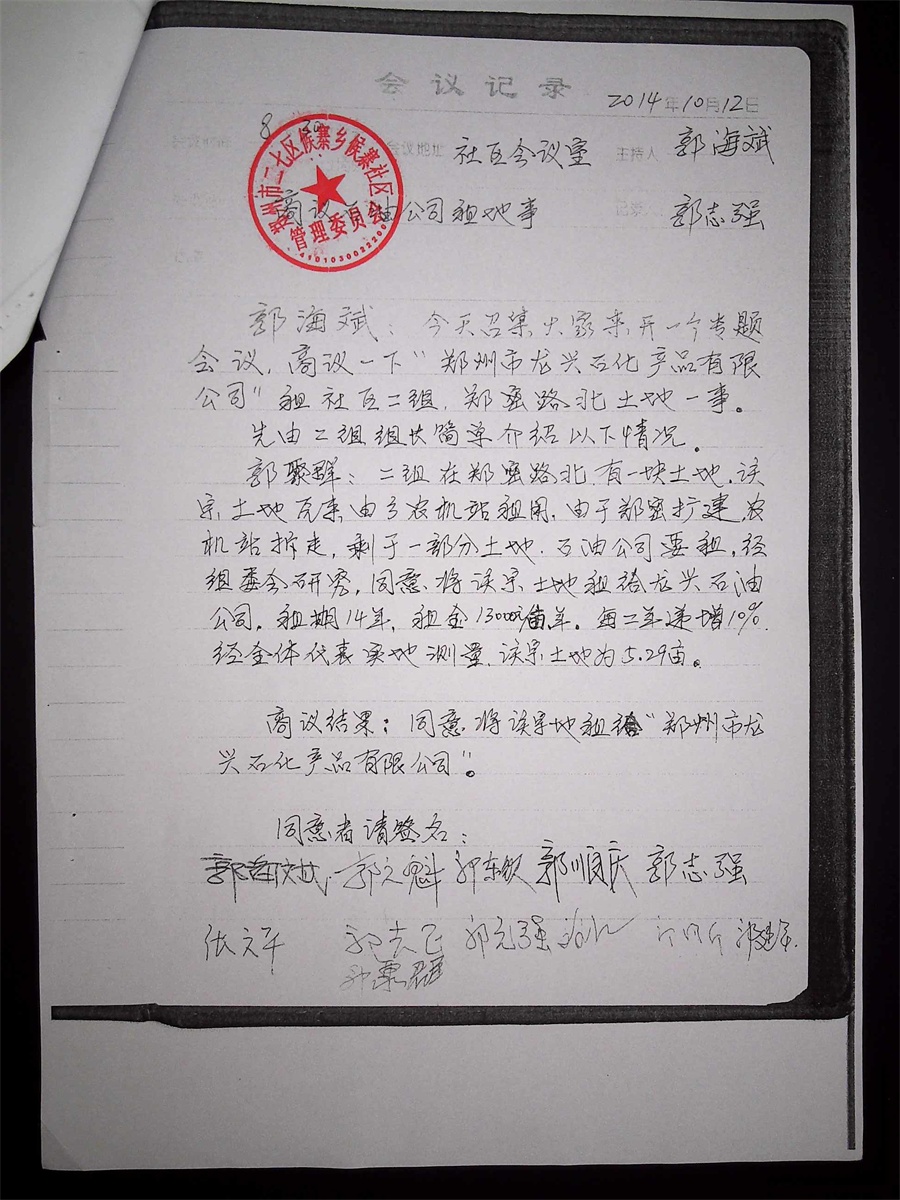 会议记录
2014年10月12日
8 会议地址 社区会议室 主持人 郭海斌
郑州市二七区侯寨乡侯寨社区
管理委员会
商议 油公司租地事 郭志强
郭海斌:今天召集大家来开一个专题
会议,商议一下"郑州市龙兴石化产品有限
公司"租社区二组,郑密路北土地一事。
先由二组组长简单介绍以下情况。
郭聚群:二组在郑密路北有一块土地,该
宗土地 来由 农机站租用,由于郑密扩建,农
机站拆走,剩于一部分土地.石油公司要租,经
组委会研究,同意将该宗土地租给龙兴石油
公司,租期14年,租金13000元/亩.年。每二年递增10%
经全体代表实地测量,该宗土地为5.29亩。
商议结果:同意将该宗地租给"郑州市龙
兴石化产品有限公司"。
同意者请签名:
郭海斌 郭 魁 郭东钦 郭顺庆 郭志强
张文平 郭 郭 强 郭建军
郭聚群